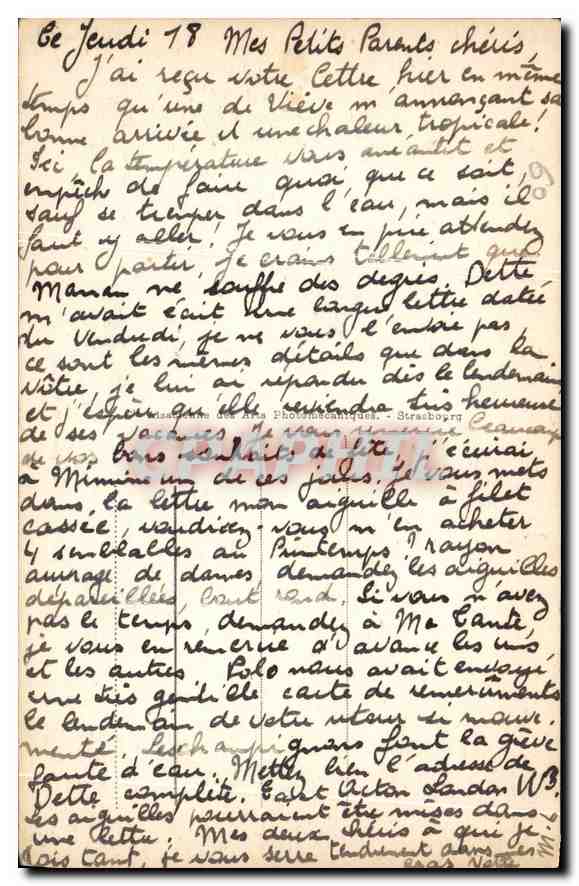 Ce Jeudi 18 Mes Petits Parents chéris,
J'ai reçu votre lettre hier en même
temps qu'une de Viève m'annonçant sa
bonne arrivée et une chaleur tropicale !
Ici, la température vous anéantit et
empêche de faire quoi que ce soit,
sauf se tremper dans l'eau, mais il
faut y aller ! Je vous en prie attendez
pour partir, je crains tellement que
Maman ne souffre des degrés. Dette
m'avait écrit une longue lettre datée
du Vendredi, je ne vous l'envoie pas,
ce sont les mêmes détails que dans la
vôtre, je lui ai répondu dès le lendemain
et j'espère qu'elle reviendra très heureuse
des Arts Photomécaniques. - Strasbourg
de ses vacances. Je vous remercie beaucoup
de vos bons souhaits de fête, j'écrirai
CPAPHIL
à Miminium de ces jolis. Je vous mets
dans la lettre mon aiguille à filet
cassée, voudriez-vous m'en acheter
4 semblables au Printemps ? rayon
ouvrage de dames demandez les aiguilles
dépareillées bout rond. Si vous n'avez
pas le temps, demandez à Ma Tante,
je vous en remercie d'avance les uns
et les autres. Lolo nous avait envoyé
une très gentille carte de remerciements
le lendemain de votre retour si mouve-
menté. Les champignons font la grève
faute d'eau. Mettez bien l'adresse de
Dette complète. East Acton London W3.
Les aiguilles pourraient être mises dans
une lettre. Mes deux chéris à qui je
dois tant, je vous serre tendrement dans mes
bras Votre